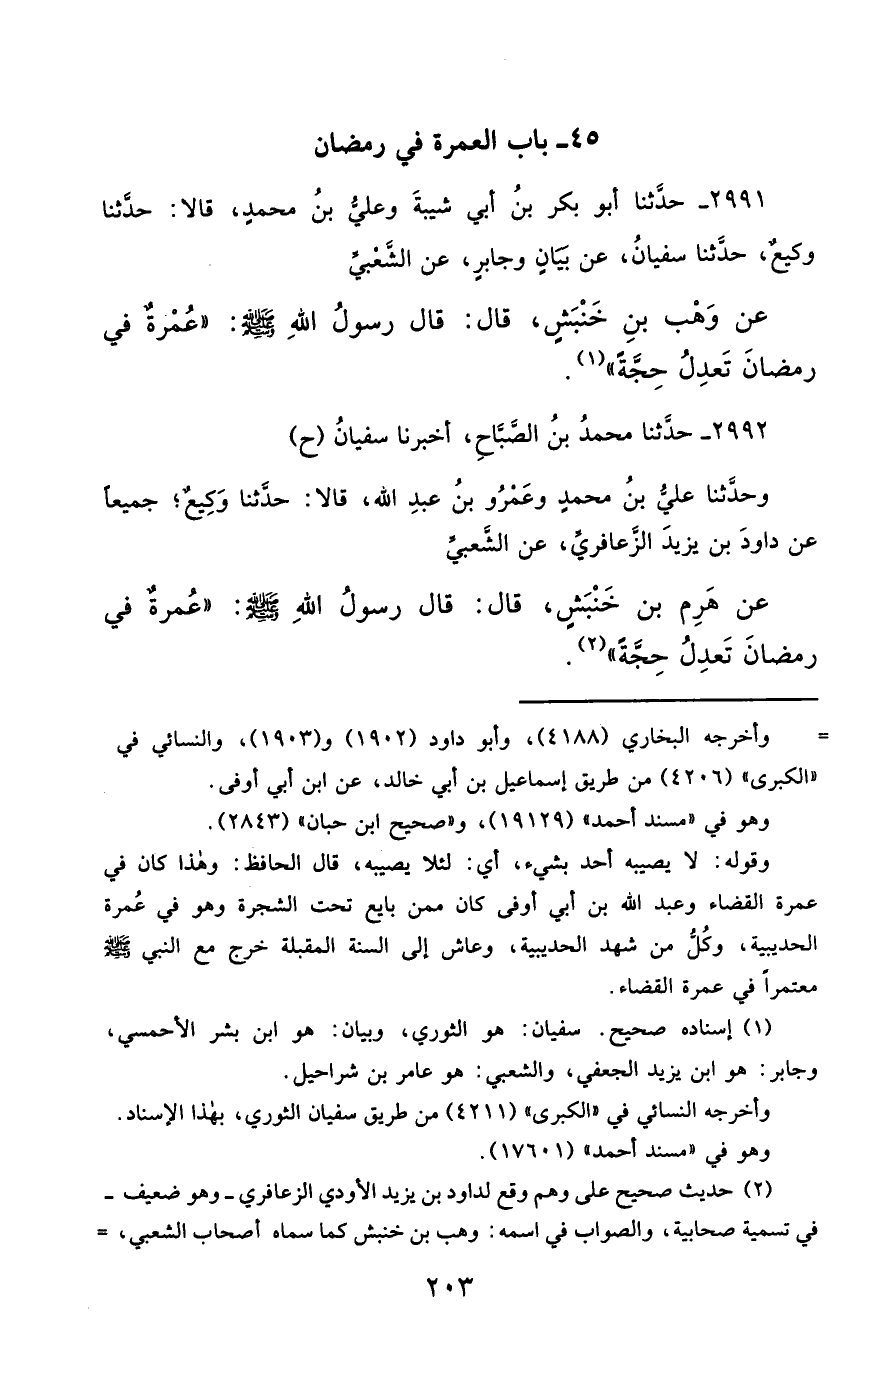 ٤٥ـ باب العمرة في رمضان
٢٩٩١ـ حدَّثنا أبو بكر بنُ أبي شيبةَ وعليُّ بنُ محمدٍ، قالا: حدَّثنا
وكيعٌ، حدَّثنا سفيانُ، عن بَيَانٍ وجابرٍ، عن الشَّعْبيِّ
عن وَهْب بنِ خَنْبَشٍ، قال: قال رسولُ اللهِ ﷺ: «عُمْرةٌ في
رمضانَ تَعدِلُ حِجَّةً»(١).
٢٩٩٢ـ حدَّثنا محمدُ بنُ الصَّبَّاحِ، أخبرنا سفيانُ (ح)
وحدَّثنا عليُّ بنُ محمدٍ وعَمْرُو بنُ عبدِ الله، قالا: حدَّثنا وَكِيعٌ؛ جميعاً
عن داودَ بن يزيدَ الزَّعافريِّ، عن الشَّعبيِّ
عن هَرِم بن خَنْبَشٍ، قال: قال رسولُ اللهِ ﷺ: «عُمرةٌ في
رمضانَ تَعدِلُ حِجَّةً»(٢).
= وأخرجه البخاري (٤١٨٨)، وأبو داود (١٩٠٢) و(١٩٠٣)، والنسائي في
«الكبرى» (٤٢٠٦) من طريق إسماعيل بن أبي خالد، عن ابن أبي أوفى.
وهو في «مسند أحمد» (١٩١٢٩)، و«صحيح ابن حبان» (٢٨٤٣).
وقوله: لا يصيبه أحد بشيء، أي: لئلا يصيبه، قال الحافظ: وهٰذا كان في
عمرة القضاء وعبد الله بن أبي أوفى كان ممن بايع تحت الشجرة وهو في عُمرة
الحديبية، وكُلُّ من شهد الحديبية، وعاش إلى السنة المقبلة خرج مع النبي ﷺ
معتمراً في عمرة القضاء.
(١) إسناده صحيح. سفيان: هو الثوري، وبيان: هو ابن بشر الأحمسي،
وجابر: هو ابن يزيد الجعفي، والشعبي: هو عامر بن شراحيل.
وأخرجه النسائي في «الكبرى» (٤٢١١) من طريق سفيان الثوري، بهٰذا الإسناد.
وهو في «مسند أحمد» (١٧٦٠١).
(٢) حديث صحيح على وهم وقع لداود بن يزيد الأودي الزعافري ـ وهو ضعيف ـ
في تسمية صحابية، والصواب في اسمه: وهب بن خنبش كما سماه أصحاب الشعبي، =
٢٠٣